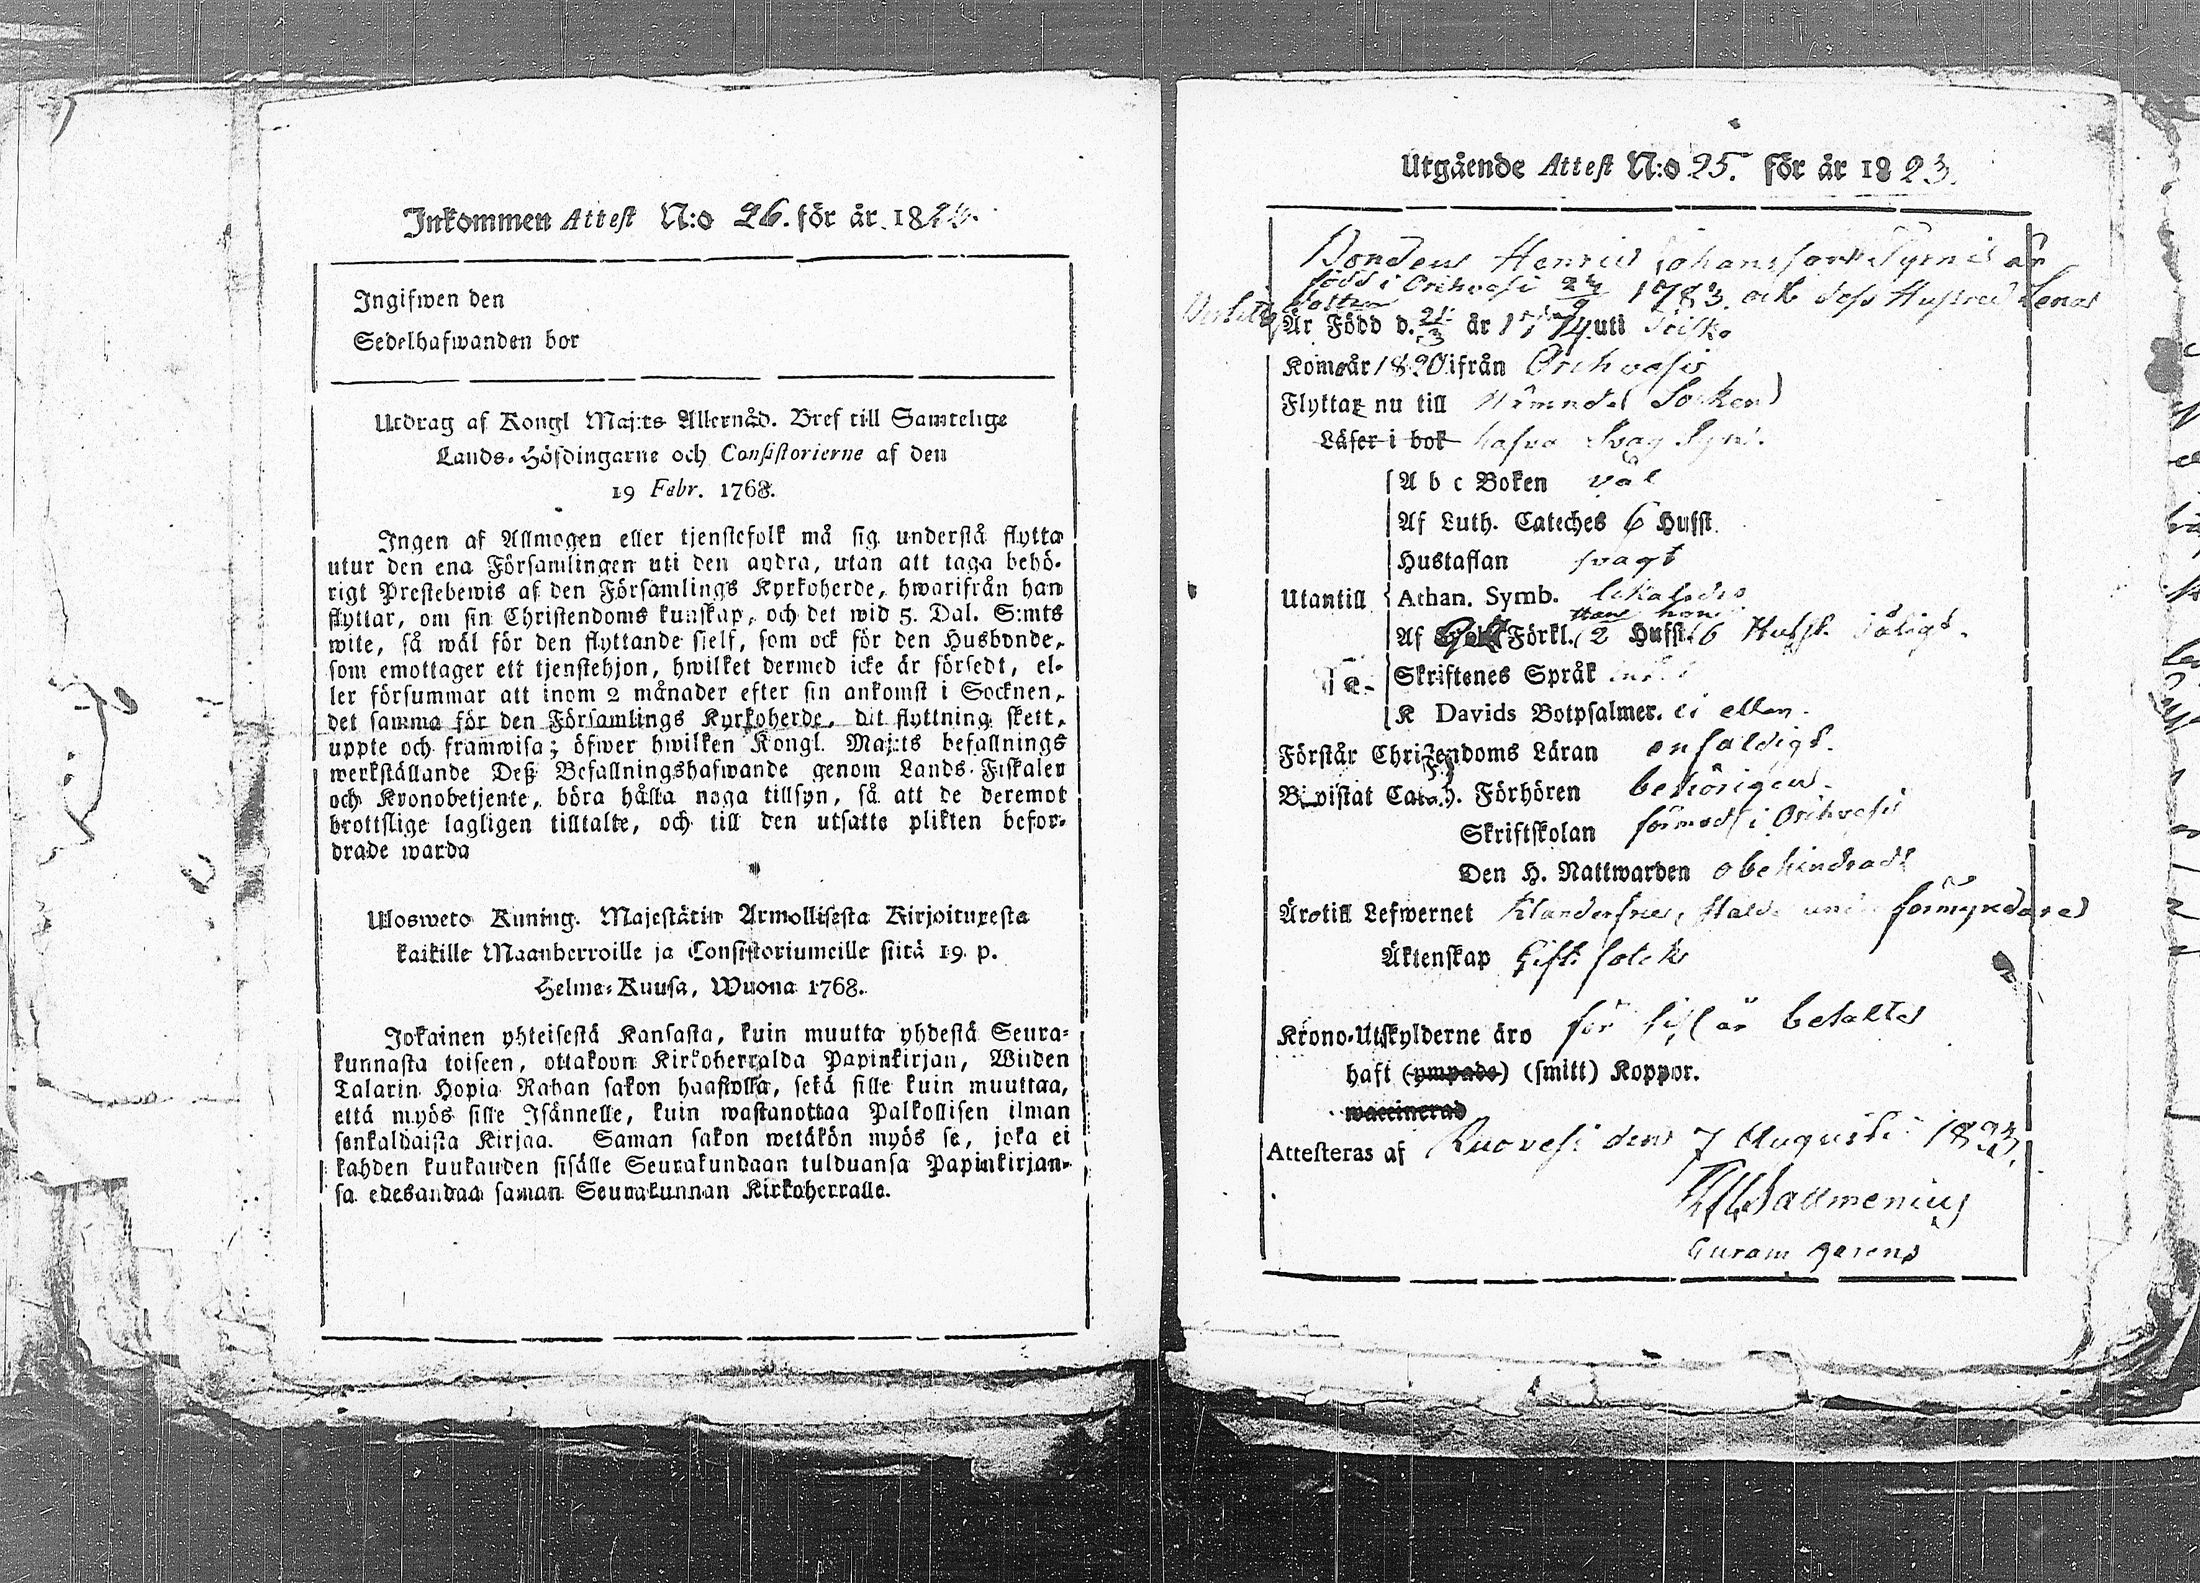 Inkommen Attest N:o 26. för år 1823.
Ingifwen den
Sedelhafwanden bor
Utdrag af Kongl Maj:ts Allernåd. Bref till Samtelige
Lands-Höfdingarne och Consistorierne af den
19 Febr. 1768.
Ingen af Allmogen eller tjenstefolk må sig understå flytta
utur den ena Församlingen uti den andra, utan att taga behö-
rigt Prestebewis af den Församlings Kyrkoherde, hwarifrån han
flyttar, om sin Christendoms kunskap, och det wid 5. Dal. S:mts
wite, så wäl för den flyttande sielf, som ock för den Husbonde,
som emottager ett tjenstehjon, hwilket dermed icke är försedt, el-
ler försummar att inom 2 månader efter sin ankomst i Socknen,
det samma för den Församlings Kyrkoherde, dit flyttning skett,
uppte och framwisa; öfwer hwilken Kongl. Maj:ts befallnings
werkställande Deß Befallningshafwande genom Lands-Fiskaler
och Kronobetjente, böra hålla noga tillsyn, så att de deremot
brottslige lagligen tilltalte, och till den utsatte plikten befor-
drade warda
Ulosweto Kuning. Majestätin Armollisesta Kirjoituxesta
kaikille Maanherroille ja Consistoriumeille siitä 19. p.
Helme-Kuusa, Wuona 1768.
Jokainen yhteisestä Kansasta, kuin muutta yhdestä Seura-
kunnasta toiseen, ottakoon Kirkoherralda Papinkirjan, Wiiden
Talarin Hopia Rahan sakon haastolla, sekä sille kuin muuttaa,
että myös sille Isännelle, kuin wastanottaa Palkollisen ilman
senkaldaista Kirjaa. Saman sakon wetäkön myös se, joka ei
kahden kuukauden sisälle Seurakundaan tulduansa Papinkirjan-
sa edesandaa saman Seurakunnan Kirkoherralle.
Utgående Attest N:o 25. för år 1823.
Bonden Henric Johansson är
född i Orihvesi 24/9 1783 och dess Hustru Lena
dotter
Är Född d. 21/3 år 1774 uti
Kom år 1820 ifrån Orihvesi
Flyttar nu till Socken
Läser i bok hafva svag syn.
A b c Boken väl
Af Luth. Cateches 6 Hufst.
Hustaflan svagt
Utantill Athan. Symb. likaledes
Af Förkl. 2 Hufst. 6 Hufst.
Skriftenes Språk
K Davids Botpsalmer. ej eller.
Förstår Christendoms Läran enfaldigt.
Biwistat Catech. Förhören behörigen.
Skriftskolan förmodl i Orihvesi
Den H. Nattwarden obehindradt
Äro till Lefwernet under förmyndare
Äktenskap Gift folk
Krono-Utskylderne äro för sist år betalte
haft (ympade) (smitt) Koppor.
waccinerad
Attesteras af Ruovesi den 7 Augusti 1823.
Curam gerens